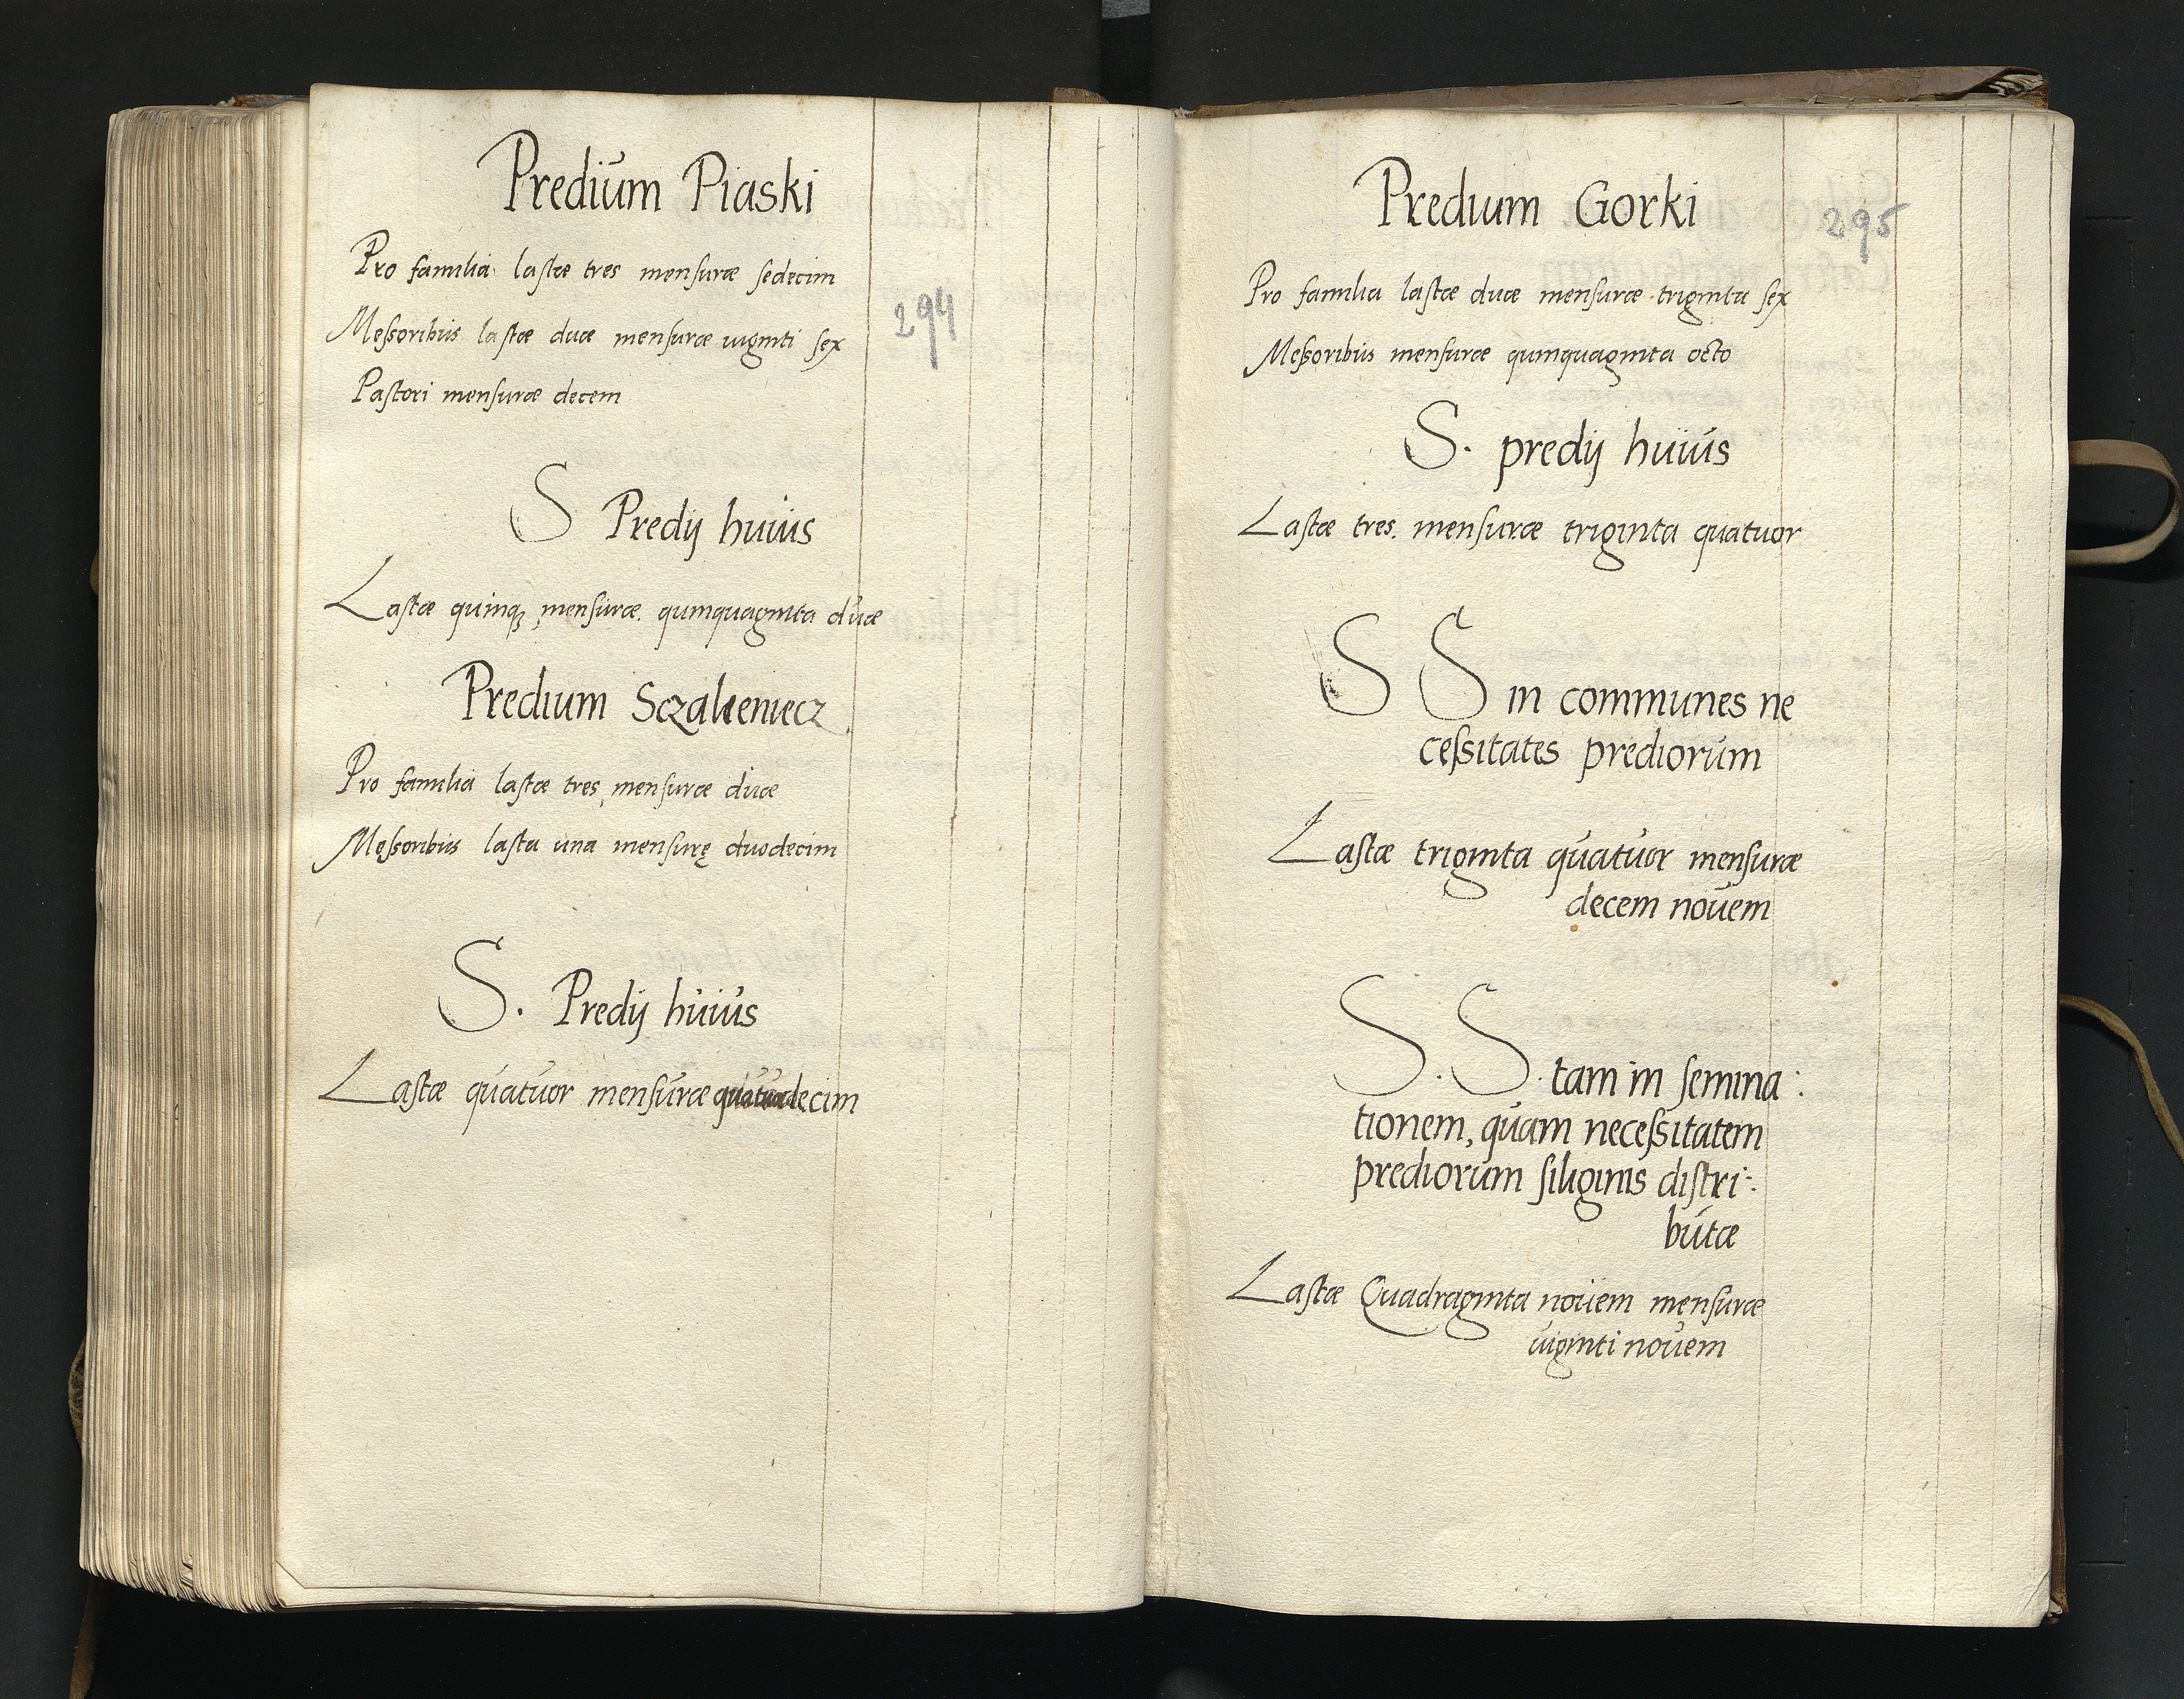 Predium Piaski
Pro familia lastæ tres mensuræ sedecim
294
Messoribus lastæ duæ mensuræ uiginti sex
Pastori mensuræ decem
S Predij huius
Lastæ quinqꝫ mensuræ quinquaginta duæ
Predium
Pro familia lastæ tres mensuræ duæ
Messoribus lasta una mensurę duodecim
S. Predij huius
Lastæ quatuor mensuræ decim
Predium Gorki
295
Pro familia lastæ duæ mensuræ triginta sex
Messoribus mensuræ quinquaginta octo
S. predij huius
Lastæ tres. mensuræ triginta quatuor
S S in communes ne
cessitates prediorum
Lastæ triginta quatuor mensuræ
decem nouem
S. S. tam in semina:
tionem, quam necessitatem
prediorum siliginis distri:
butæ
Lastæ Quadraginta nouem mensuræ
uiginti nouem